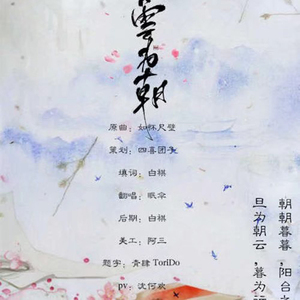 雲为朝
原曲：如怀尺璧
策划：四喜团子
填词：白祺
翻唱：眠伞
后期：白祺
美工：阿三
题字：青肆ToriDo
pv：沈何欢
旦为朝云，暮为
朝朝暮暮，阳台